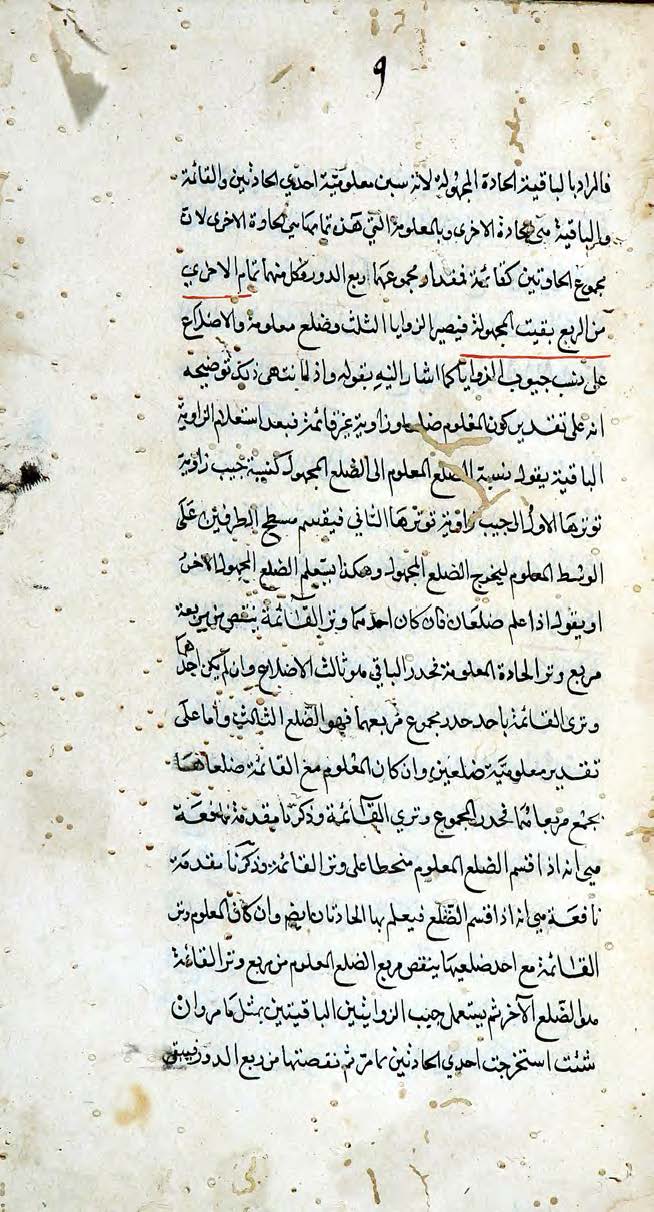 ٩
فالمراد بالباقية الحادة المجهولة لانه سبق معلومية احدي الحادتين والقائمة
والباقية هي الحادة الاخرى وبالمعلومة التي هذه تمامها هي الحادة الاخرى لان
مجموع الحادتين كقائمة فمقدار مجموعهما ربع الدور وكل منهما تمام الاخري
من الربع بقيت المجهولة فيصير الزوايا الثلث وضلع معلومة والاضلاع
على نسب جيوب الزوايا كما اشار اليه بقوله واذ لما نتهى ذلك توضيحه
انه على تقدير كون المعلوم ضلعا وزاوية غير قائمة فبعد استعلام الزاوية
الباقية يقول نسبة الضلع المعلوم الى الضلع المجهول كنسبة جيب زاوية
توترها الاول الى جيب زاوية توترها الثاني فيقسم مسطح الطرفين على
الوسط المعلوم ليخرج الضلع المجهول وهكذا يستعلم الضلع المجهول الاخر
او يقول اذا علم ضلعان فان كان احدهما وتر القائمة ينقص من مربعه
مربع وتر الحادة المعلومة فجذر الباقي هو ثالث الاضلاع وان لم يكن احدهما
وتري القائمة ياخذ جذر مجموع مربعهما فهو الضلع الثالث واما على
تقدير معلومية ضلعين وان كان المعلوم مع القائمة ضلعاها
يجمع مربعاهما فجذر المجموع وتري القائمة وذكرنا مقدمة نافعة
هي انه اذا قسم الضلع المعلوم منحطا على وتر القائمة وذكرنا مقدمة
نافعة هي انه اذا قسم الضلع فيعلم بها الحادتان ايضا وان كان المعلوم وتر
القائمة مع احد ضلعيها ينقص مربع الضلع المعلوم من مربع وتر القائمة
هو الضلع الآخر ثم يستعمل جيب الزوايتين الباقيتين بمثل ما مر وان
شئت استخرجت احدي الحادتين بما مر ثم نقصتها من ربع الدور فيبقى